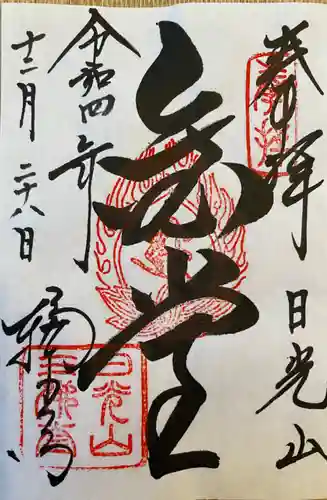 奉拝 日光山
金堂
令和四年
十二月二十八日
輪王寺
日光山